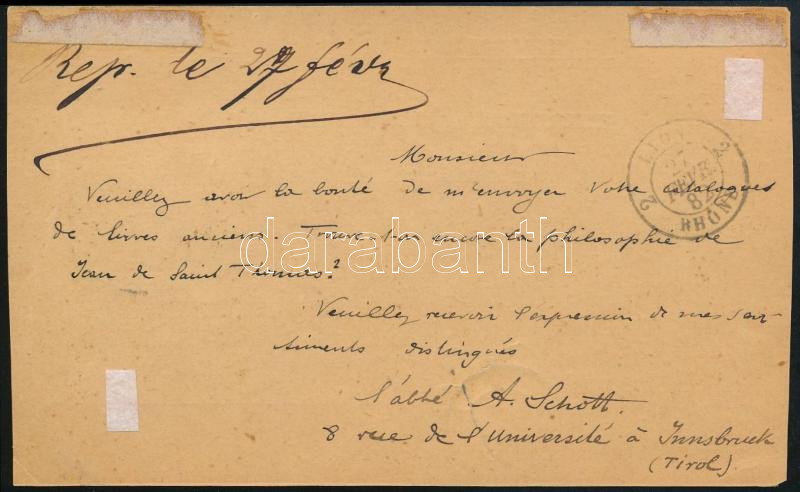 Rep. le 27 févr
Monsieur
Veuillez avoir la bonté de m'envoyer Votre catalogues
de livres anciens. Trouve-t-on encore la philosophie de
Jean de Saint Thomas?
Veuillez recevoir l'expression de mes sen-
timents distingués
l'abbé A. Schott.
8 rue de l'Université à Innsbruck
(Tirol)
LYON 2
FEVR
82
2 RHÔNE
darabanth